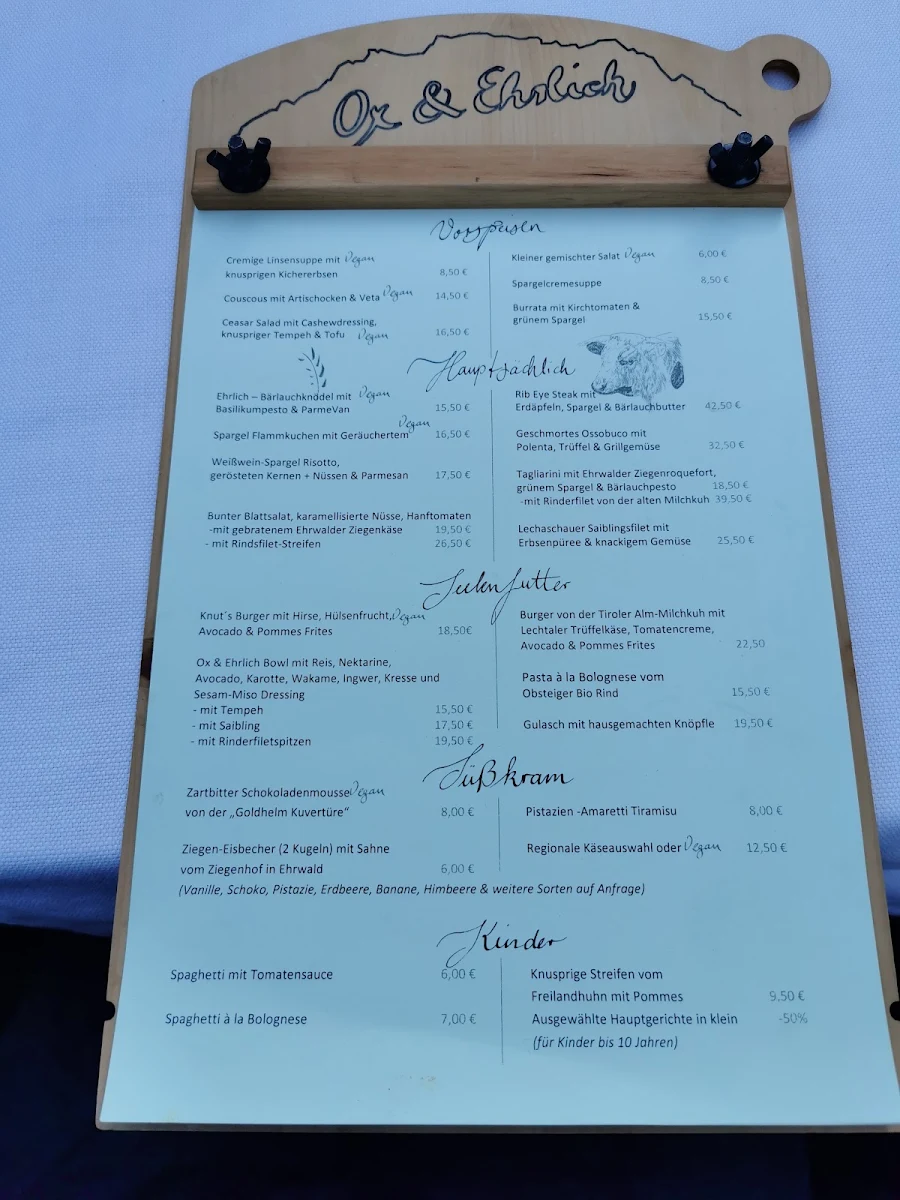 Ox & Ehrlich
Vorspeisen
Cremige Linsensuppe mit Vegan
knusprigen Kichererbsen 8,50 €
Couscous mit Artischocken & Veta Vegan 14,50 €
Ceasar Salad mit Cashewdressing,
knuspriger Tempeh & Tofu Vegan 16,50 €
Kleiner gemischter Salat Vegan 6,00 €
Spargelcremesuppe 8,50 €
Burrata mit Kirchtomaten &
grünem Spargel 15,50 €
Hauptsächlich
Ehrlich – Bärlauchknödel mit Vegan
Basilikumpesto & ParmeVan 15,50 €
Vegan
Spargel Flammkuchen mit Geräuchertem 16,50 €
Weißwein-Spargel Risotto,
gerösteten Kernen + Nüssen & Parmesan 17,50 €
Bunter Blattsalat, karamellisierte Nüsse, Hanftomaten
-mit gebratenem Ehrwalder Ziegenkäse 19,50 €
- mit Rindsfilet-Streifen 26,50 €
Rib Eye Steak mit
Erdäpfeln, Spargel & Bärlauchbutter 42,50 €
Geschmortes Ossobuco mit
Polenta, Trüffel & Grillgemüse 32,50 €
Tagliarini mit Ehrwalder Ziegenroquefort,
grünem Spargel & Bärlauchpesto 18,50 €
-mit Rinderfilet von der alten Milchkuh 39,50 €
Lechaschauer Saiblingsfilet mit
Erbsenpüree & knackigem Gemüse 25,50 €
Seelenfutter
Knut´s Burger mit Hirse, Hülsenfrucht, Vegan
Avocado & Pommes Frites 18,50€
Ox & Ehrlich Bowl mit Reis, Nektarine,
Avocado, Karotte, Wakame, Ingwer, Kresse und
Sesam-Miso Dressing
- mit Tempeh 15,50 €
- mit Saibling 17,50 €
- mit Rinderfiletspitzen 19,50 €
Burger von der Tiroler Alm-Milchkuh mit
Lechtaler Trüffelkäse, Tomatencreme,
Avocado & Pommes Frites 22,50
Pasta à la Bolognese vom
Obsteiger Bio Rind 15,50 €
Gulasch mit hausgemachten Knöpfle 19,50 €
Süßkram
Zartbitter Schokoladenmousse Vegan
von der „Goldhelm Kuvertüre“ 8,00 €
Ziegen-Eisbecher (2 Kugeln) mit Sahne
vom Ziegenhof in Ehrwald 6,00 €
(Vanille, Schoko, Pistazie, Erdbeere, Banane, Himbeere & weitere Sorten auf Anfrage)
Pistazien -Amaretti Tiramisu 8,00 €
Regionale Käseauswahl oder Vegan 12,50 €
Kinder
Spaghetti mit Tomatensauce 6,00 €
Spaghetti à la Bolognese 7,00 €
Knusprige Streifen vom
Freilandhuhn mit Pommes 9.50 €
Ausgewählte Hauptgerichte in klein -50%
(für Kinder bis 10 Jahren)